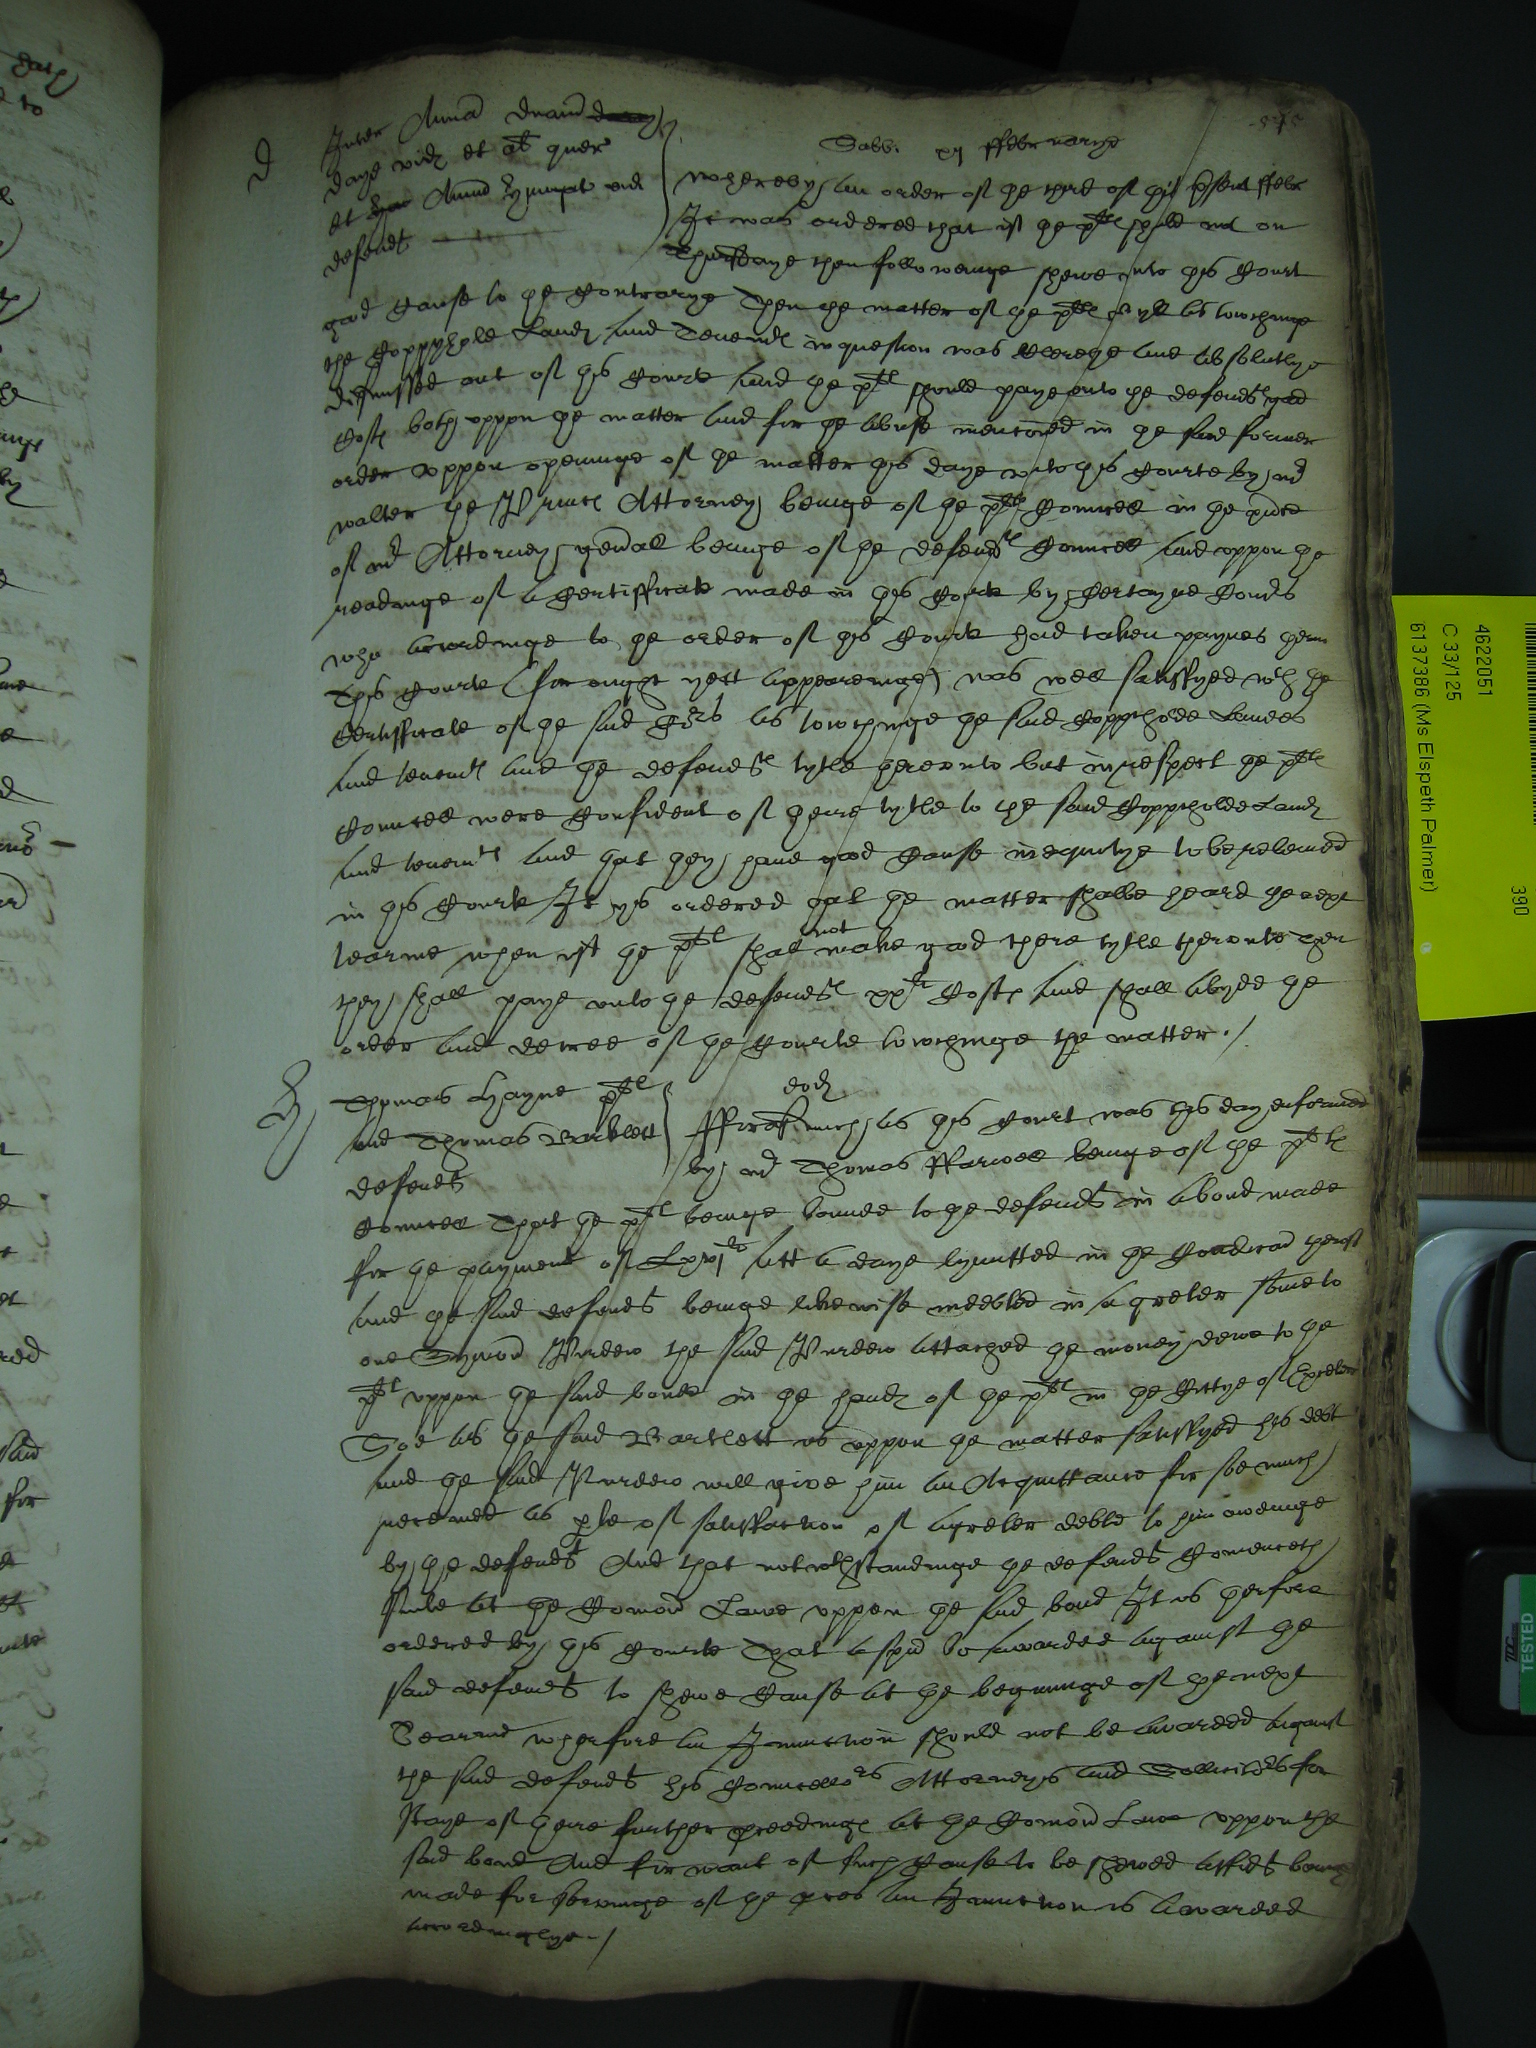 D
Inter Anna
Daye vid et al quer
et Anna vid
defend
Sabb. xij ffebruarye
Whereby an order of the third of this present ffebr
It was ordered that if the plt should not on
Thursdaye then followinge shewe unto this Court
good Cause to the Contrarye Then the matter of the plt bill as towchinge
the Coppyholde Landes and Tenemtes in question was clerelye and absolutlye
dismissed out of this Courte And the plt should paye unto the defendtes good
Costes both uppon the matter and for the abuse mencioned in the said former
order Uppon openinge of the matter this daye unto this Courte by mr
walter the Princes Attorney beinge of the pltes Councell in the prnce
of mr Attorney generall beinge of the defendtes Councell and uppon the
readinge of a Certifficate made in this Court by Certayne Comrs
who accordinge to the order of this Courte had taken paynes therin
This Courte (for ought yett appearinge) was well satisfyed wth the
Certifficate of the said Comrs as towchinge the said Coppiholde Landes
and tenemtes and the defendtes tytle therunto but in respect the pltes
Councell were Confident of theire tytle to the said Coppiholde Landes
and tenemtes and that they have good Cause in equitye to be releived
in this Courte It ys ordered that the matter shalbe heard the next
tearme when if the plt shall not make good there tytle therunto then
they shall paye unto the defendtes xxli Costes and shall abyde the
order and decree of the Courte towchinge the matter ./
H
Thomas Hayne plt
and Thomas Bartlett
defendt
eod
fforasmuch as this Court was this day enformed
by mr Thomas ffarwell beinge of the pltes
Councell That the plt beinge bounde to the defendt in a bond made
for the payment of att a daye lymitted in the Condicon therof
and the said defendt beinge likewise indebted in a greter some to
one Symon Purdew the said Purdew attached the money dewe to the
plt uppon the said bonde in the handes of the plt in the Cittye of Exceter
Soe as the said Bartlett is uppon the matter satisfyed his debt
and the said Purdew will give him an Acquittance for soe much
receaved as pte of satisfaction of a greter debte to him oweinge
by the defendt And that notwthstandinge the defendt Comenceth
suite at the Comon Lawe uppon the said bond It is therfore
ordered by this Courte That a spa be awarded against the
said defendt to shewe Cause at the beginninge of the next
Tearme wherfore an Iniunction should not be awarded against
the said defendt his Councellors Attorneys and Sollicitors for
staye of theire further proceedinges at the Comon Lawe uppon the
said bond And for want of such Cause to be shewed affidt beinge
made for servinge of the proces an Iniunction is awarded
accordinglye ./
4622051
C 33/125
6137386 (Ms Elspeth Palmer)
390
TESTED